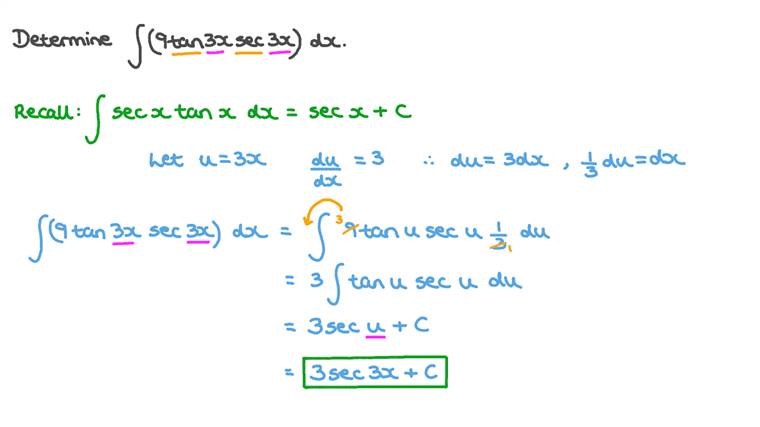 Determine ∫(9tan3x sec3x) dx.
Recall: ∫ sec x tan x dx = sec x + C
Let u = 3x du/dx = 3 ∴ du = 3dx , 1/3 du = dx
∫(9 tan 3x sec 3x) dx = ∫ 3 9 tan u sec u 1/3 1 du
= 3 ∫ tan u sec u du
= 3 sec u + C
= 3 sec 3x + C